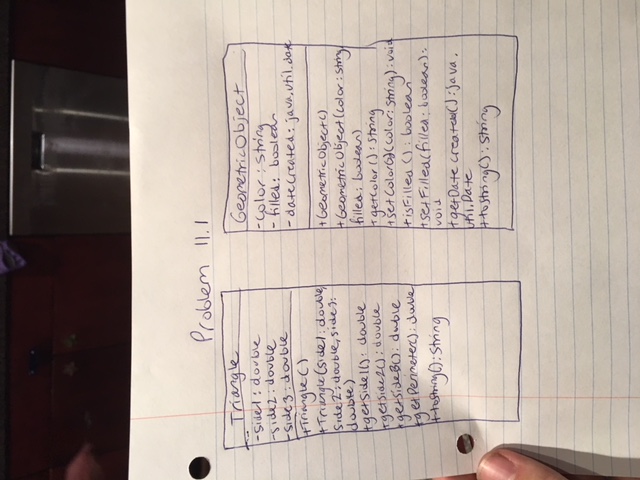 Problem 11.1
Triangle
-side1: double
-side2: double
-side3: double
+Triangle()
+Triangle(side1: double,
side2: double, side3:
double)
+getSide1(): double
+getSide2(): double
+getSide3(): double
+getPerimeter(): double
+toString(): String
GeometricObject
-color: String
-filled: boolean
-dateCreated: java.util.date
+GeometricObject()
+GeometricObject(color: String
filled: boolean)
+getColor(): String
+setColor(color: String): void
+isFilled(): boolean
+setFilled(filled: boolean):
void
+getDateCreated(): java.
util.Date
+toString(): String